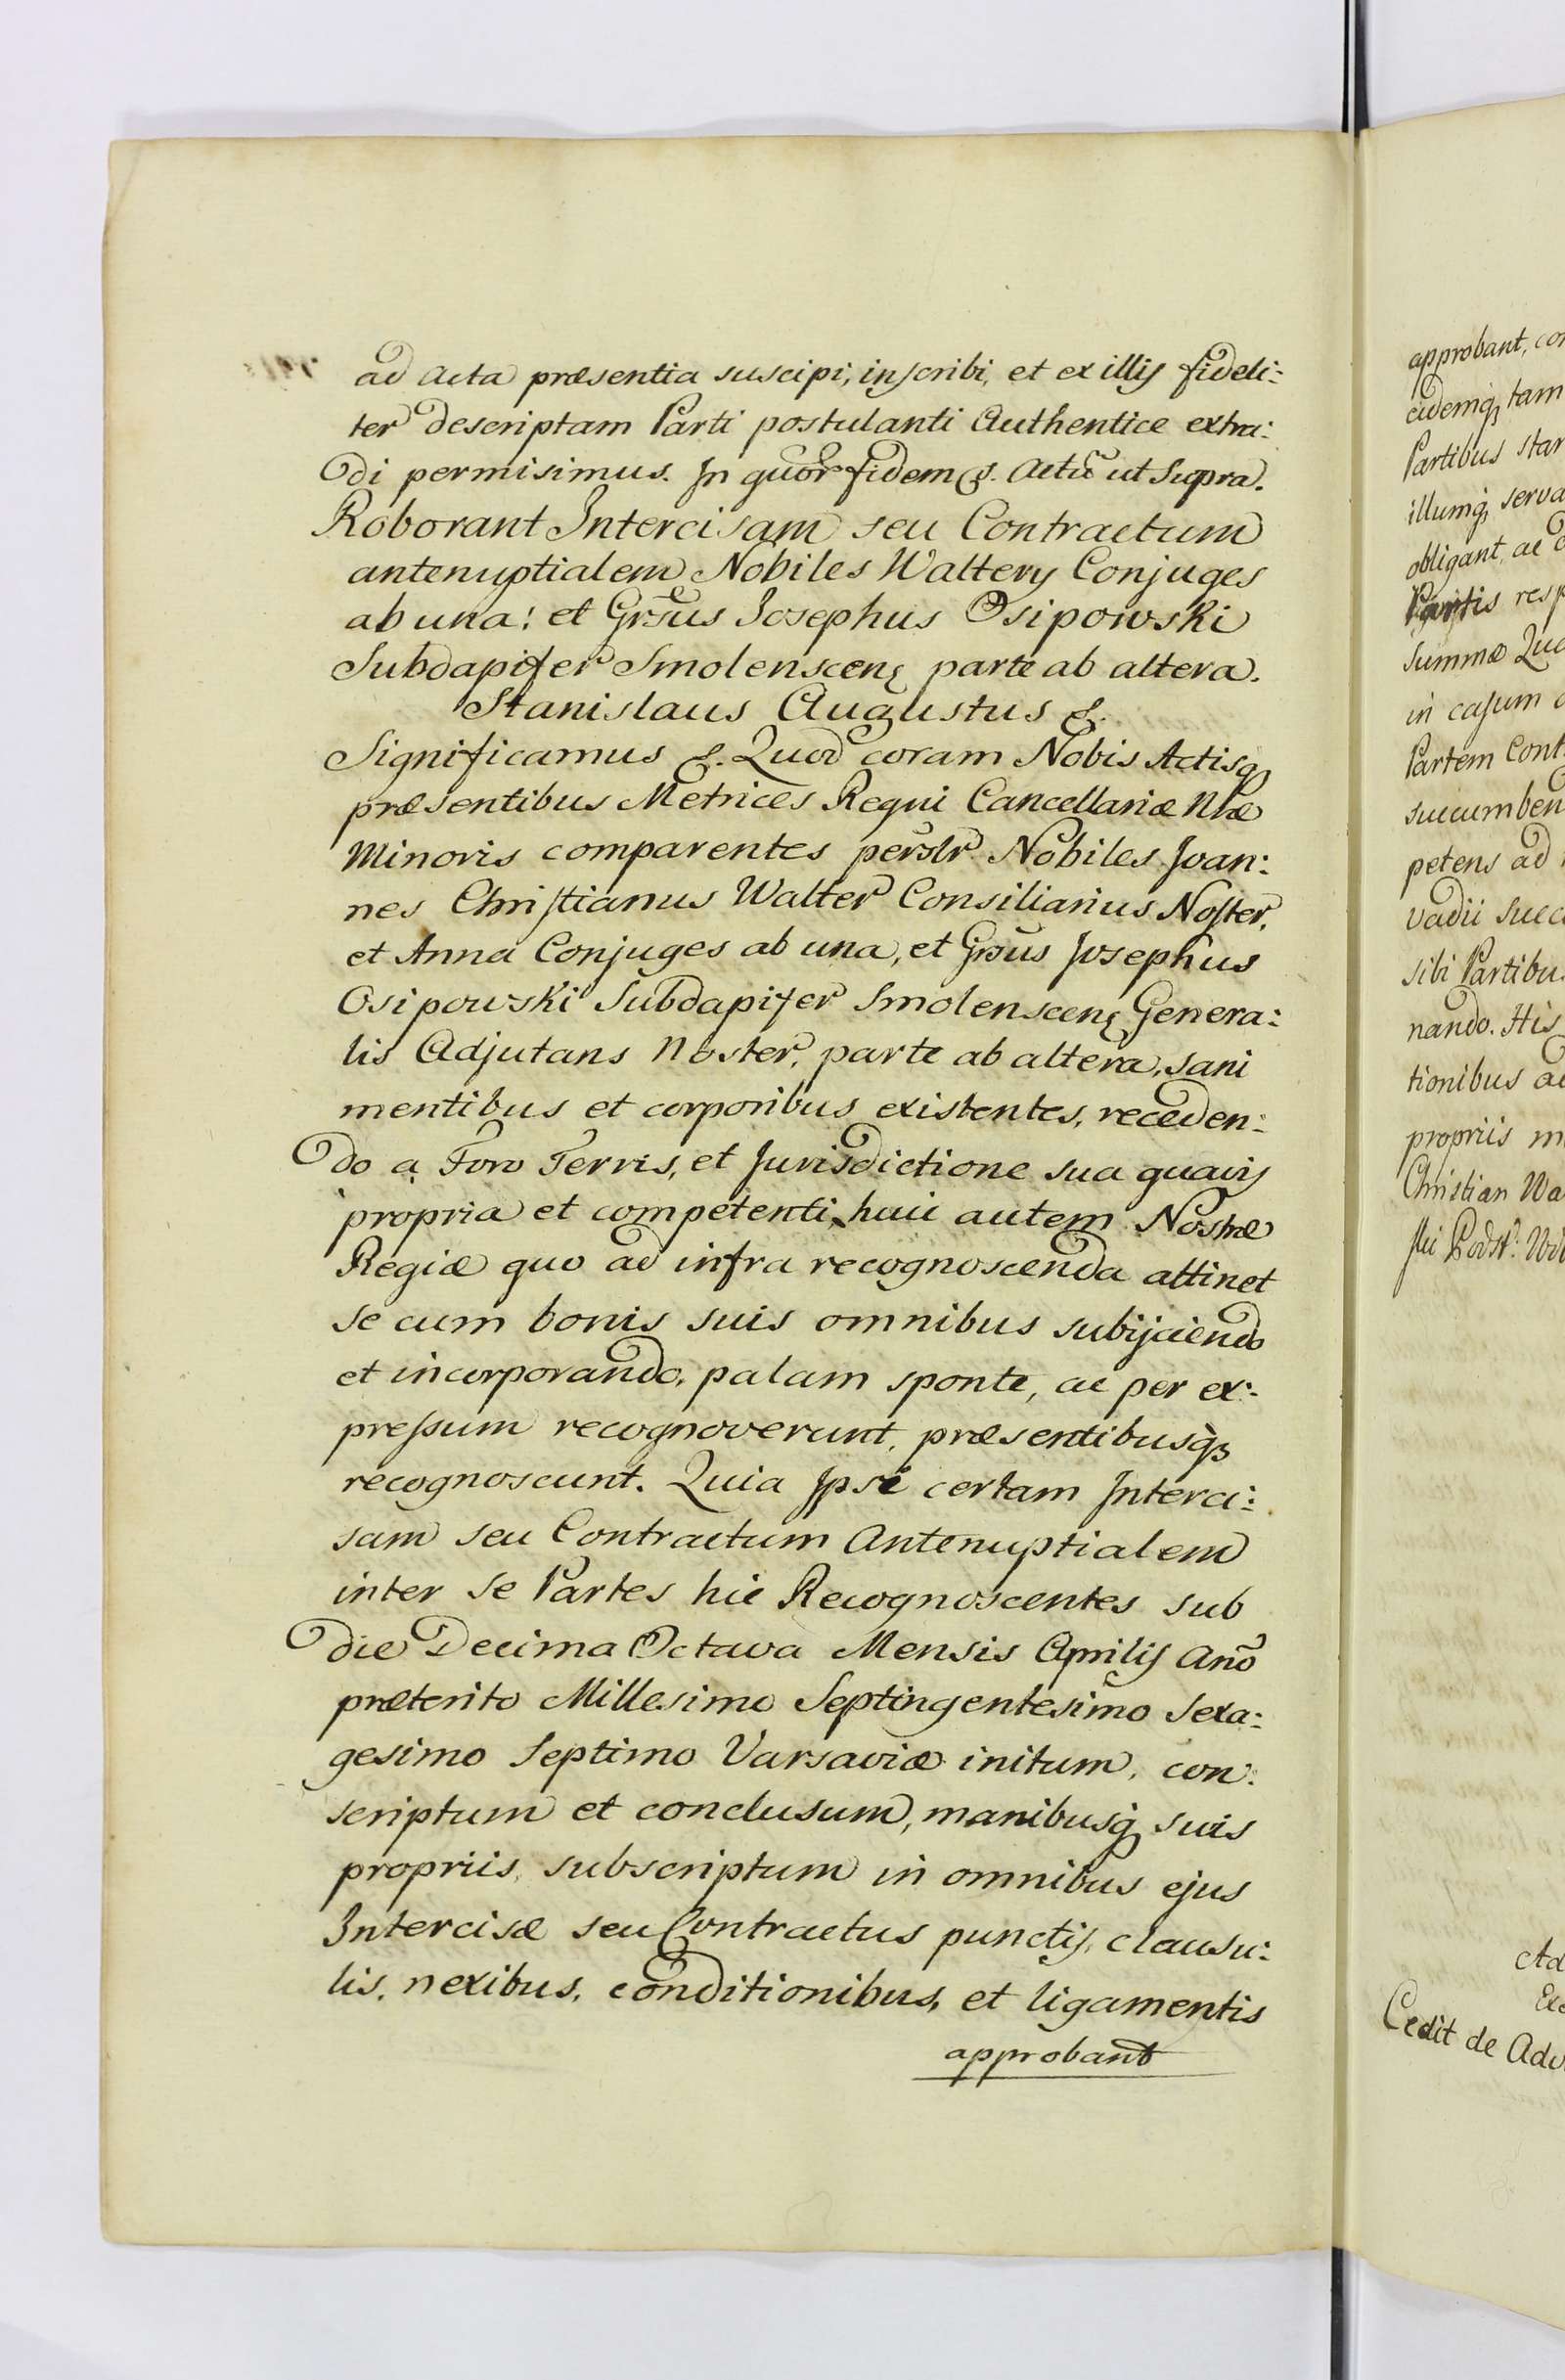 ad Acta præsentia suscipi, inscribi, et ex illis fideli:
ter descriptam Parti postulanti Authentice extra:
di permisimus. In quor̃ fidem &. Actũ ut Supra.
Roborant Intercisam seu Contractum
antenuptialem Nobiles Waltery Conjuges
ab una: et Gr̃sus Josephus Osipowski
Subdapifer Smolenscenę parte ab altera.
Stanislaus Augustus &.
Significamus &. Quod coram Nobis Actisq
præsentibus Metrices Regni Cancellariæ Nræ
Minoris comparentes perslr̃ Nobiles Joan:
nes Christianus Walter Consiliarius Noster,
et Anna Conjuges ab una, et Gr̃sus Josephus
Osipowski Subdapifer Smolenscenę Genera:
lis Adjutans Noster, parte ab altera, sani
mentibus et corporibus existentes, receden:
do a Foro Terris, et Jurisdictione sua quavis
propria et competenti, huic autem Nostræ
Regiæ quo ad infra recognoscenda attinet
se cum bonis suis omnibus subijciendo
et incorporando, palam sponte, ac per ex:
pressum recognoverunt, præsentibusq
recognoscunt. Quia Ipsi certam Interci:
sam seu Contractum Antenuptialem
inter se Partes hic Recognoscentes sub
die Decima Octava Mensis Aprilis Anõ
præterito Millesimo Septingentesimo Sexa:
gesimo Septimo Varsaviæ initum, con:
scriptum et conclusum, manibusq suis
propriis subscriptum in omnibus ejus
Intercisæ seu Contractus punctis, clausu:
lis, nexibus, conditionibus, et ligamentis
approbant
approbant, con
eidemq tam
Partibus star
illumq serva
obligant, ac
Partis resp
Summæ Qua
in casum
Partem Cont
succumben
petens ad
vadii succ
sibi Partibu
nando. His
tionibus ac
propriis m
Christian Wa
Podst:
Ad
Cedit de Adv